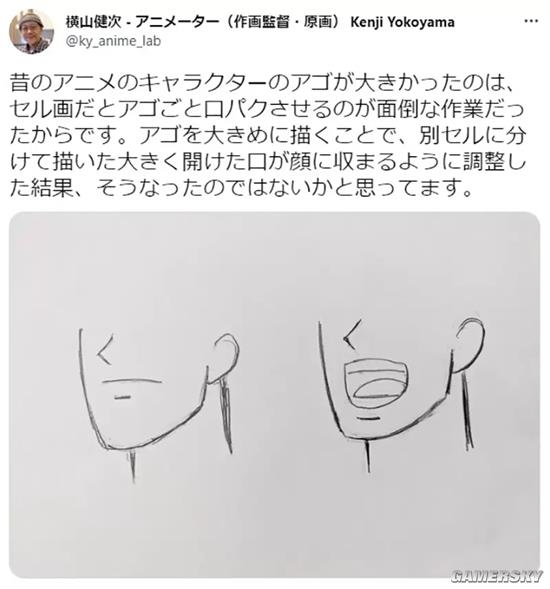 横山健次 - アニメーター（作画監督・原画） Kenji Yokoyama
@ky_anime_lab
昔のアニメのキャラクターのアゴが大きかったのは、
セル画だとアゴごと口パクさせるのが面倒な作業だっ
たからです。アゴを大きめに描くことで、別セルに分
けて描いた大きく開けた口が顔に収まるように調整し
た結果、そうなったのではないかと思ってます。
GAMERSKY